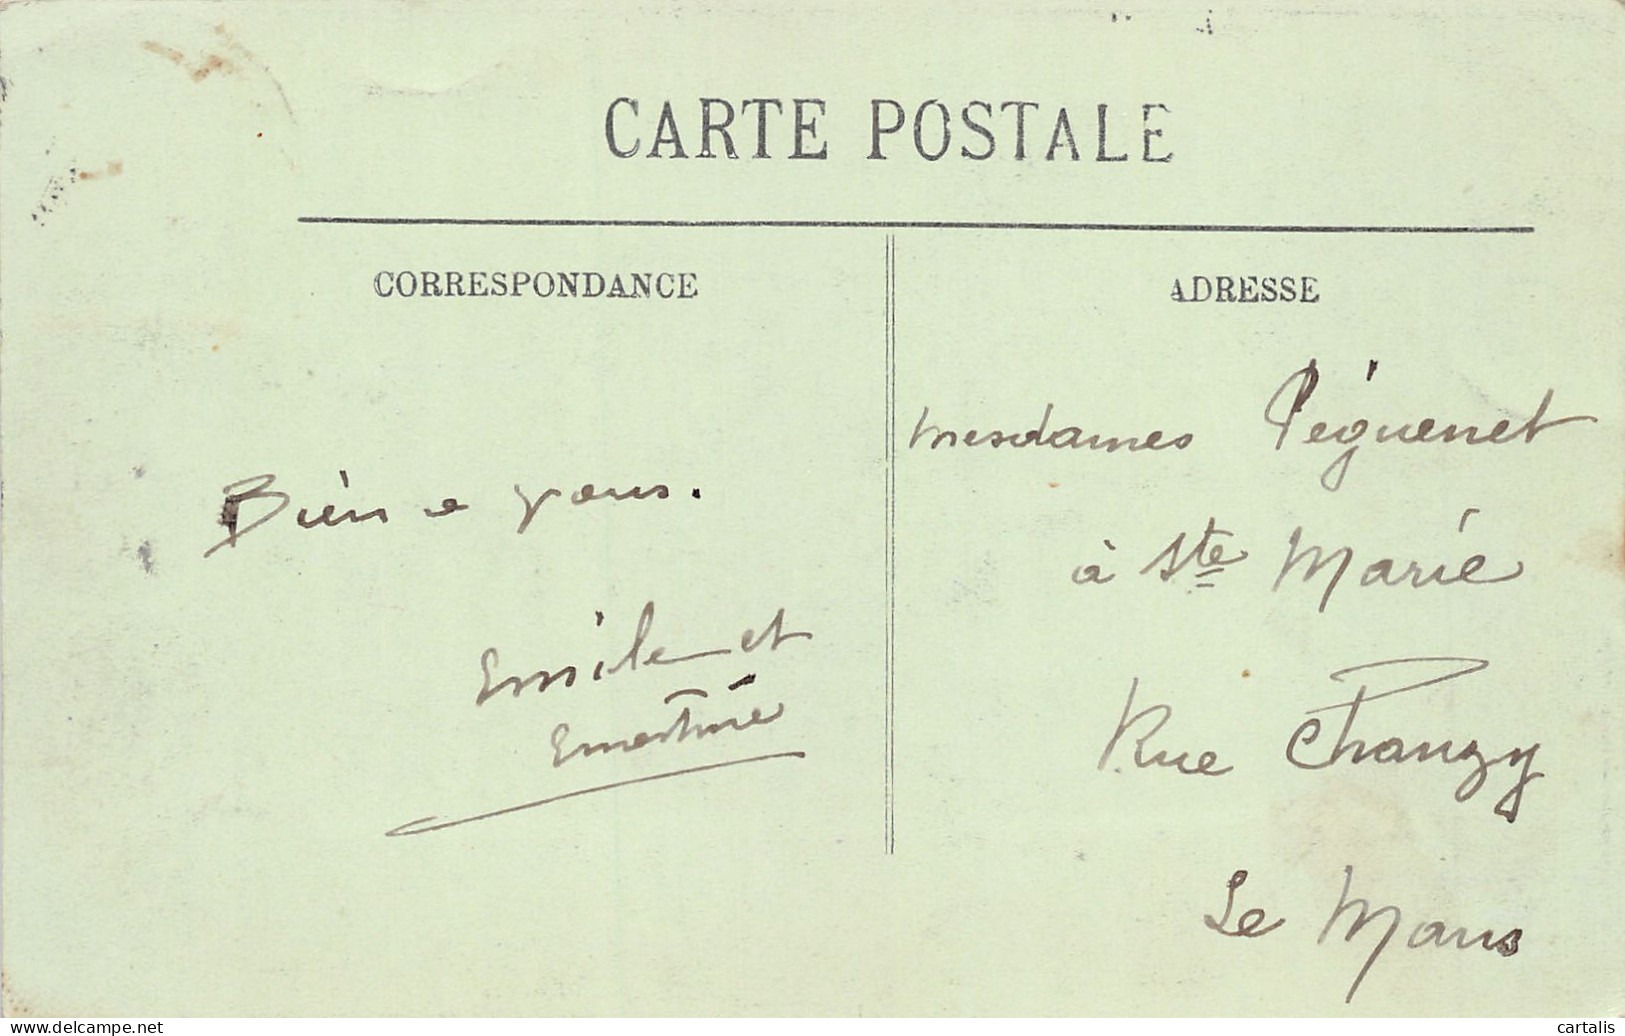 CARTE POSTALE
CORRESPONDANCE
Bien a vous.
Emile et
Ernestine
ADRESSE
Mesdames Péguenet
à Ste Marie
Rue Chanzy
Le Mans
www.delcampe.net
cartalis